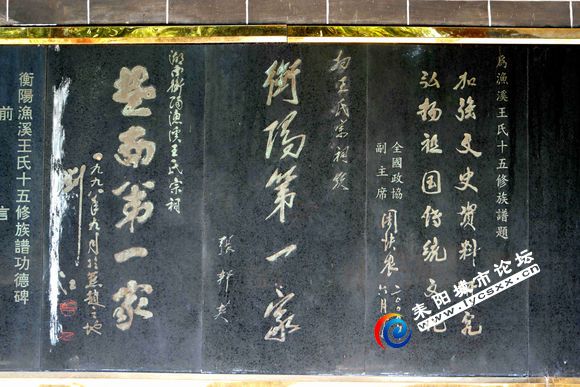 為漁溪王氏十五修族譜題
加強文史資料研究
弘揚祖国传统文化
全國政協
副主席
六月
为王氏宗祠题
衡陽第一家
湖南衡陽漁溪王氏宗祠
楚南第一家
一九九〇年九月於燕趙之地
衡陽漁溪王氏十五修族譜功德碑
前言
耒阳城市论坛
www.lycsxx.cn